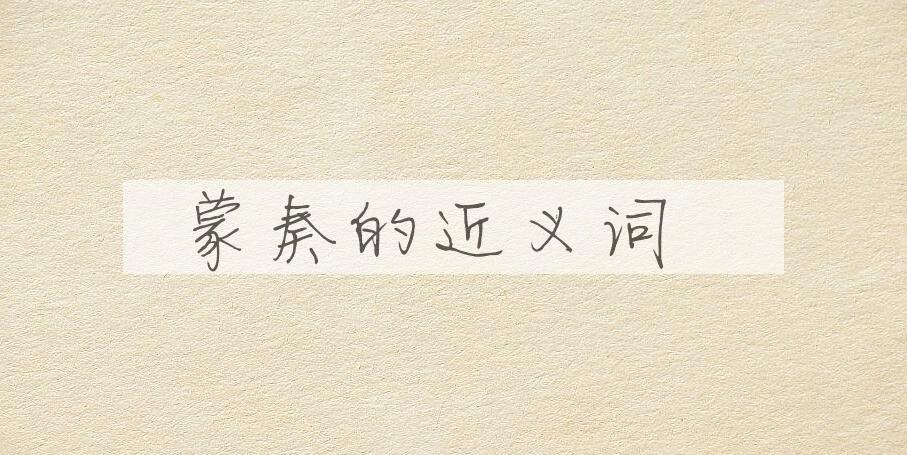 蒙奏的近义词